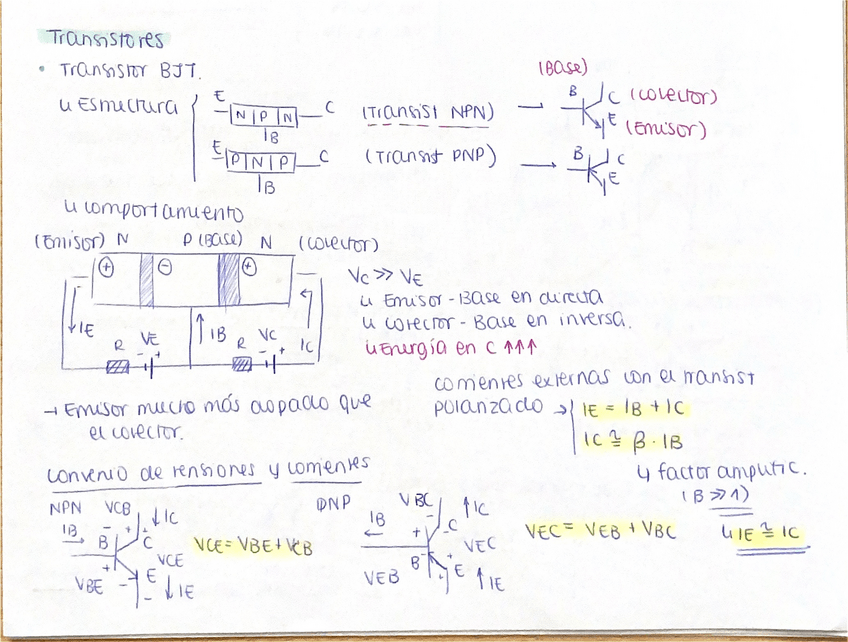 Transistores
• Transistor BJT.
Estructura
E N P N C (Transist NPN) → B C (colector) E (Emisor) (Base)
B
E P N P C (Transist PNP) → B C E
B
comportamiento
(Emisor) N P (Base) N (colector)
+ - +
IE R VE IB R VC IC
- + - +
VC >> VE
Emisor - Base en directa
colector - Base en inversa.
Energía en C ↑↑↑
→ Emisor mucho más dopado que
el colector.
corrientes externas con el transist
polarizado → IE = IB + IC
IC ≅ β · IB
↳ factor amplific.
(β >> 1)
↳ IE ≅ IC
convenio de tensiones y corrientes
NPN VCB ↓ IC
IB → B - + C
+ VCE
VBE - E ↓ IE
VCE = VBE + VCB
PNP VBC ↑ IC
IB ← + - C
B - VEC
VEB + E ↑ IE
VEC = VEB + VBC